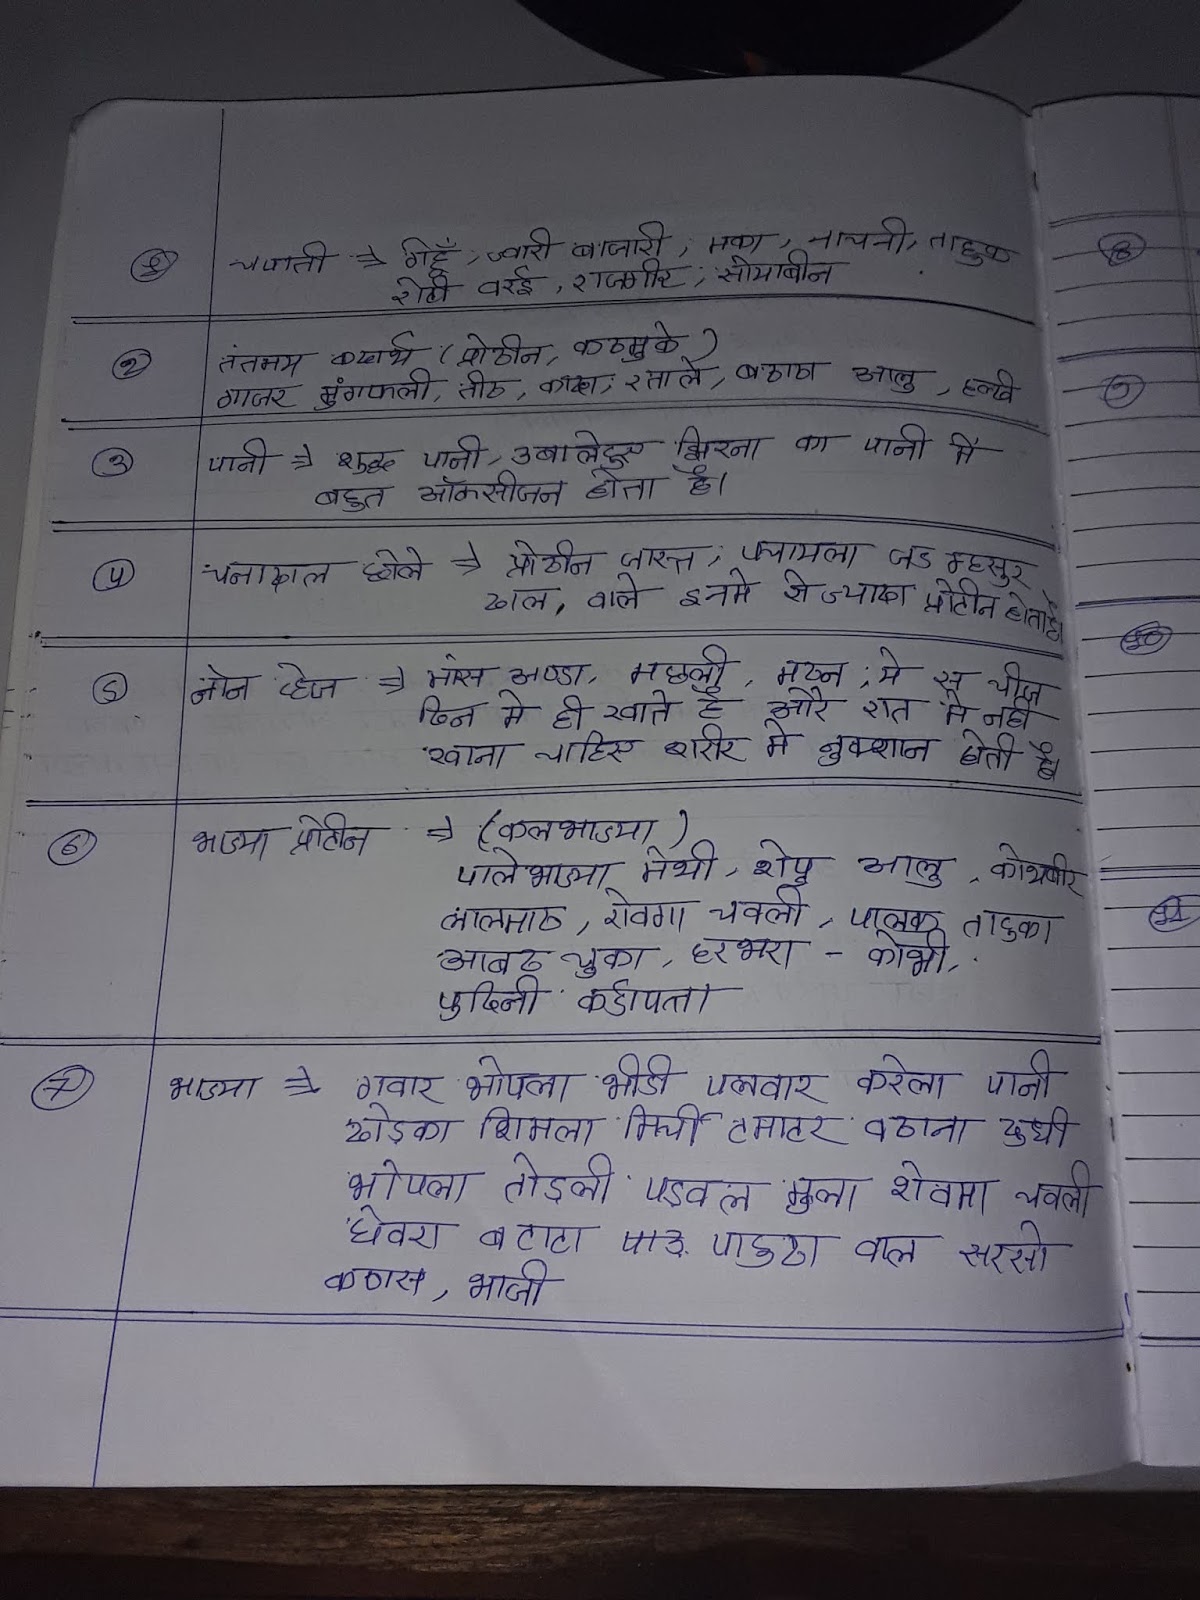 १ चपाती ⇒ गेहूँ, ज्वारी बाजारी, मका, नाचनी, तांदुळ
रोटी वरई, राजगीर, सोयाबीन
२ तंतमय पदार्थ (प्रोटीन, कंदमुळे)
गाजर मुंगफली, बीट, कांदा, रताले, बटाटा आलु, हल्दी
३ पानी ⇒ शुद्ध पानी, उबालेहुए झिरना का पानी में
बहुत ऑकसीजन होता है।
४ चनादाल छोले ⇒ प्रोटीन जास्त, म्हसुर
दाल, वाले इनमे से ज्यादा प्रोटीन होता है।
५ नॉन व्हेज ⇒ मांस अण्डा, मछली, मटन, ये सब चीज
दिन मे ही खाते है और रात मे नही
खाना चाहिए शरीर मे नुकशान होती है।
६ भाज्या प्रोटीन ⇒
पालेभाज्या मेथी, शेपु आलु, कोथंबीर
लालमाठ, शेवगा चवली, पालक तांदुळका
आंबट चुका, हरभरा - कोभी,
पुदिनी कडीपत्ता
७ भाज्या ⇒ गवार भोपला भेंडी पलवार करेला पानी
दोडका शिमला मिर्ची टमाटर वटाना दुधी
भोपला तोंडली पडवल मुला शेवगा चवली
घेवरा बटाटा वाल सरसो
भाजी
८
९
१०
११